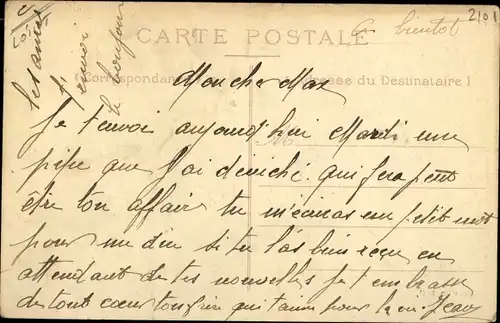 2101
à bientot
CARTE POSTALE
(Correspondance
Adresse du Destinataire)
Mon cher Max
Je t'envoi aujourd'hui Mardi une
pipe que J'ai déniché qui fera peut
être ton affair tu m'écriras un petit mot
pour me dire si tu l'as bien reçu en
attendant de tes nouvelles je t'embrasse
de tout coeur ton frère qui t'aime pour la vie Jean
le bonjour